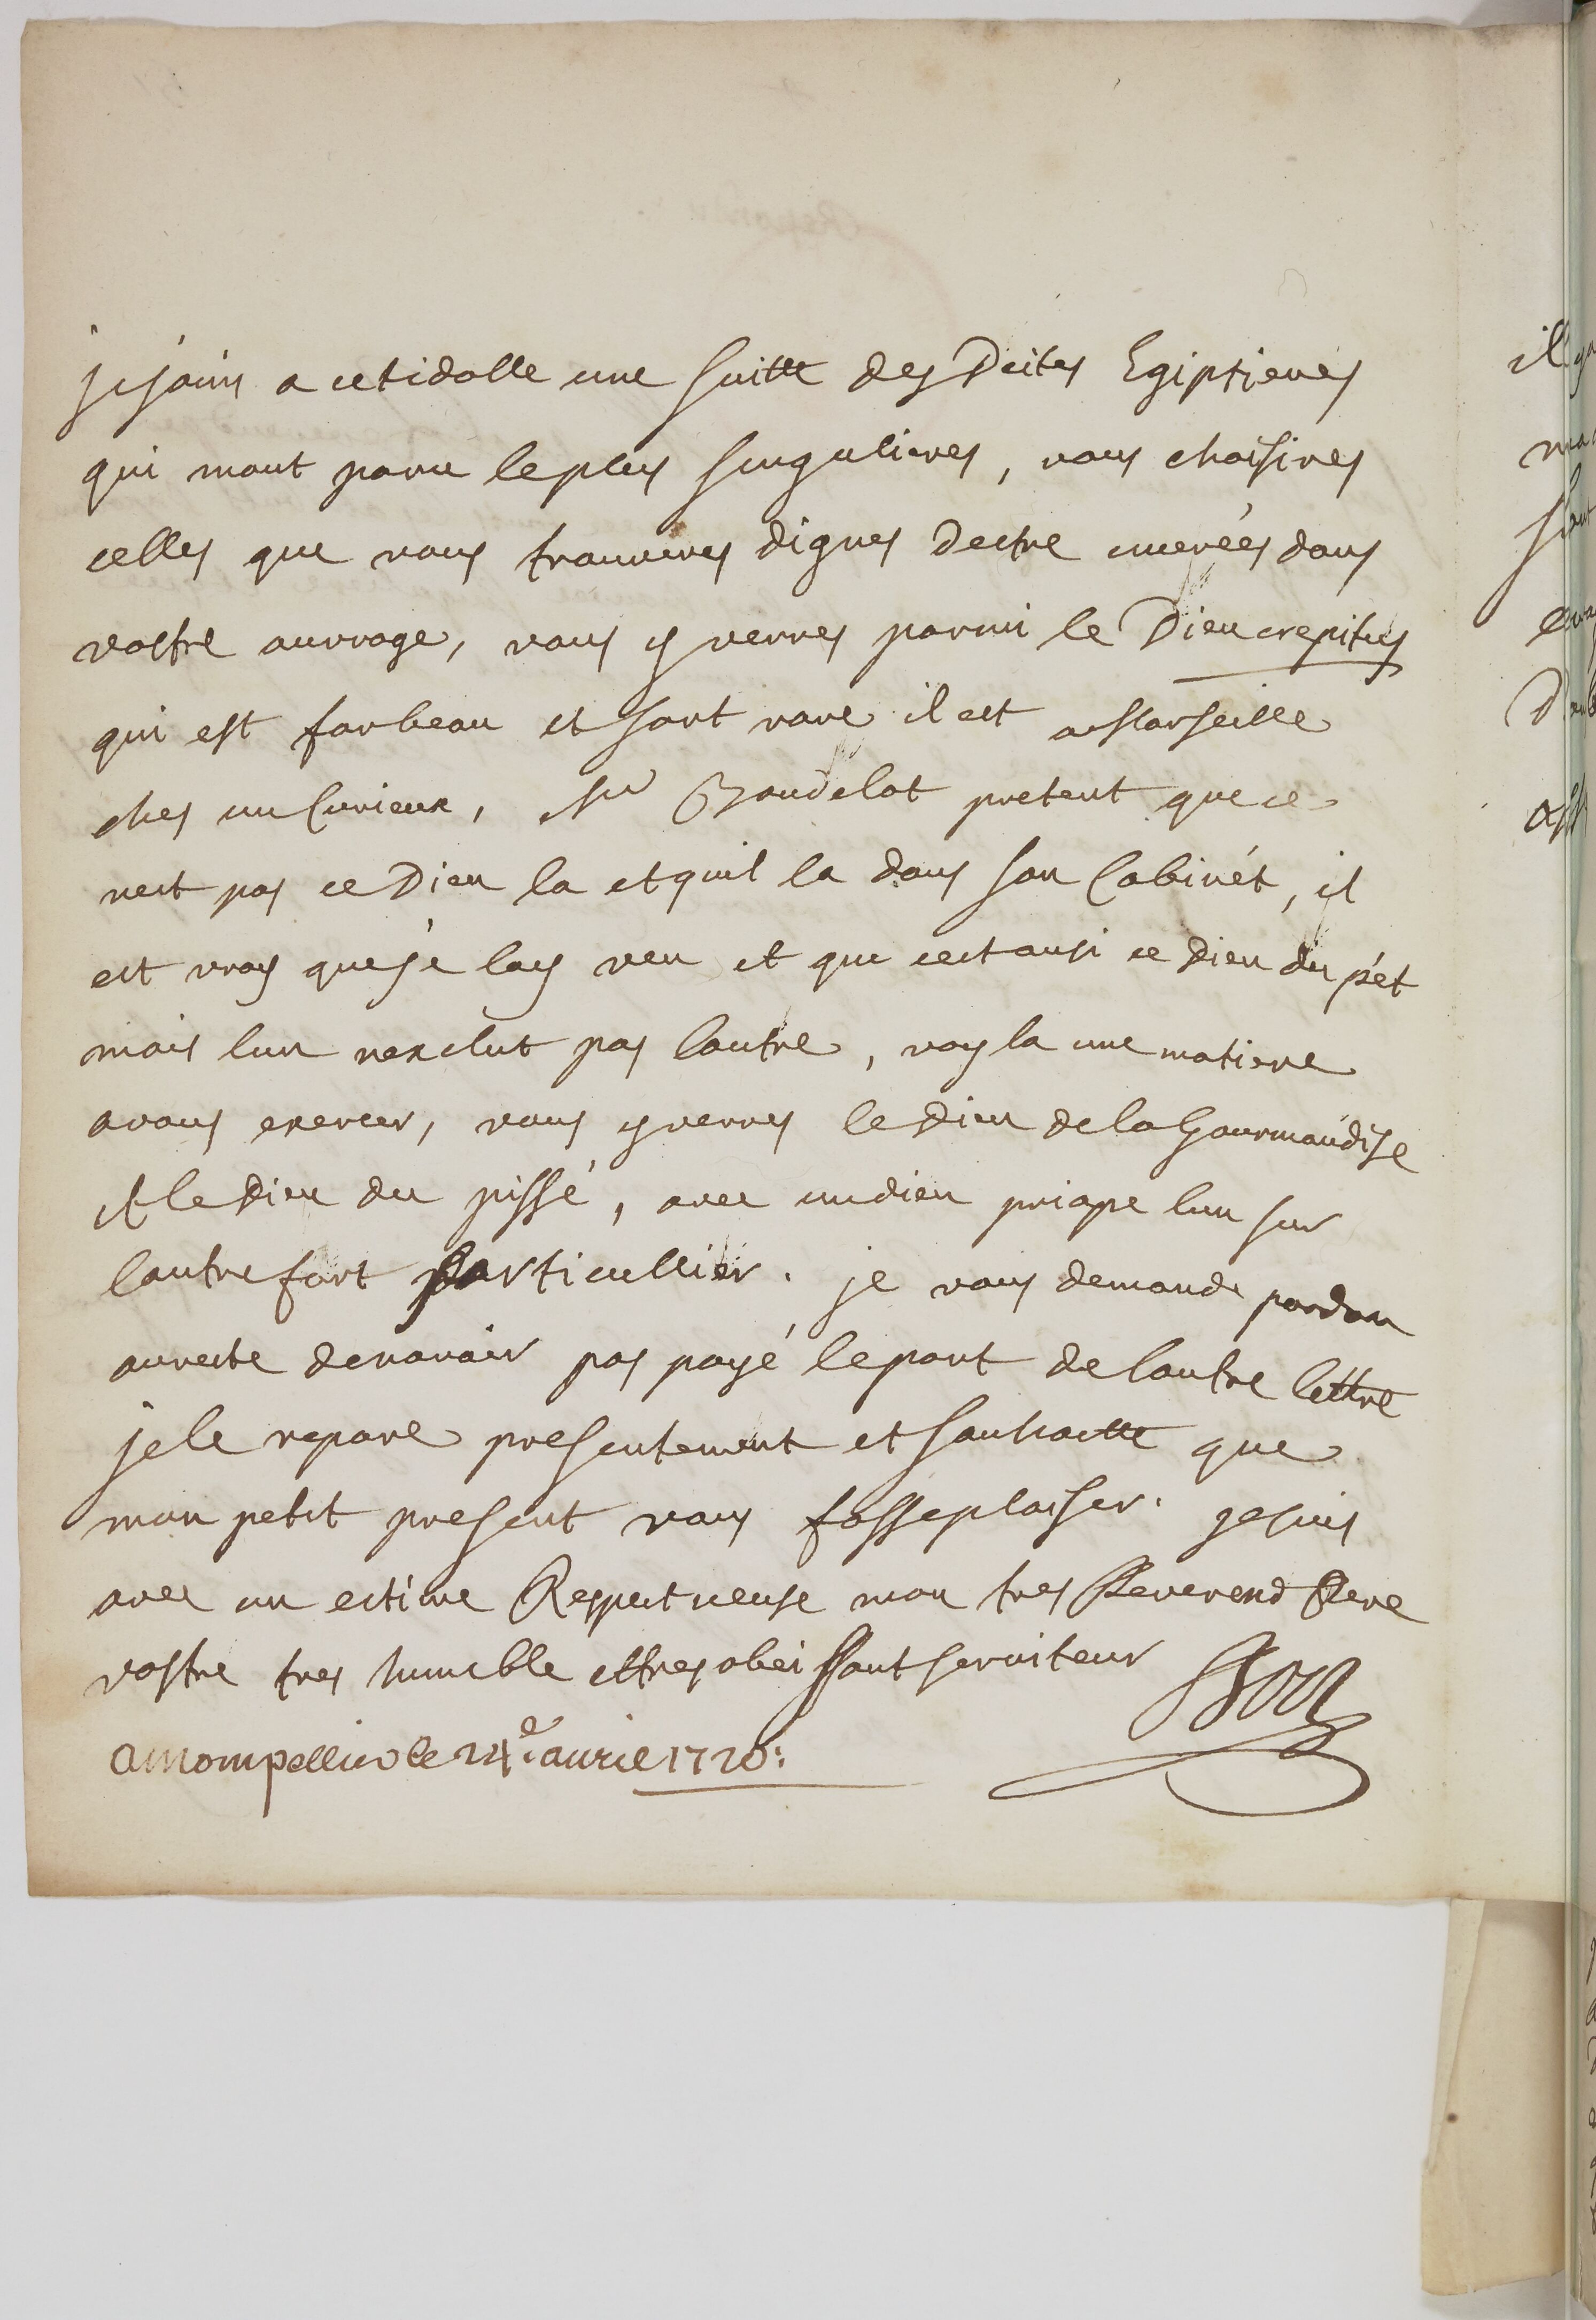 je joins a cet idolle une suitte des Deites Egiptienes
qui mont paru le plus singulieres, vous choisires
celles que vous trouveres dignes Destre incerées dans
vostre ouvrage, vous y verres parmi le Dieu crepitus
qui est for beau et fort rare il est a Marseille
ches un Curieux, Mr Baudelot pretent que ce
nest pas ce Dieu la et quil la dans son Cabinét, il
est vray que je lay veu et que cest ausi ce Dieu du pét
mais lun nexclut pas lautre, voyla une matiere
a vous exercer, vous y verres le Dieu de la Gourmandise
et le Dieu du pissé, avec un dieu priape lun sur
lautre fort particullier. je vous demande pardon
au reste de navoir pas payé le port de lautre lettre
je le repare presentement et souhaitte que
mon petit present vous fasse plaiser. je suis
avec un estime Respectueuse mon tres Reverend Pere
vostre tres humble et tres obeissant serviteur Bon
a Mompellier le 24e avril 1720.